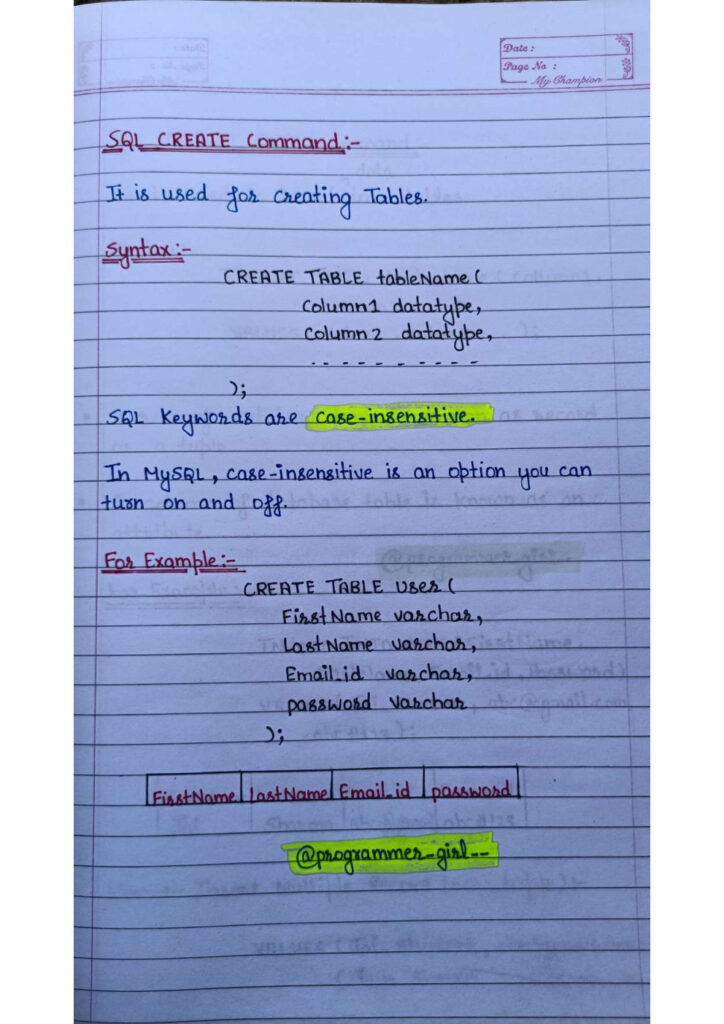 Date :
Page No :
My Champion
SQL CREATE Command :-
It is used for creating Tables.
Syntax :-
CREATE TABLE tableName (
Column1 datatype,
Column2 datatype,
- - - - - - - - - -
);
SQL Keywords are case-insensitive.
In MySQL, case-insensitive is an option you can
turn on and off.
For Example :-
CREATE TABLE User (
FirstName varchar,
LastName varchar,
Email_id varchar,
password varchar
);
FirstName LastName Email_id password
@programmer_girl__